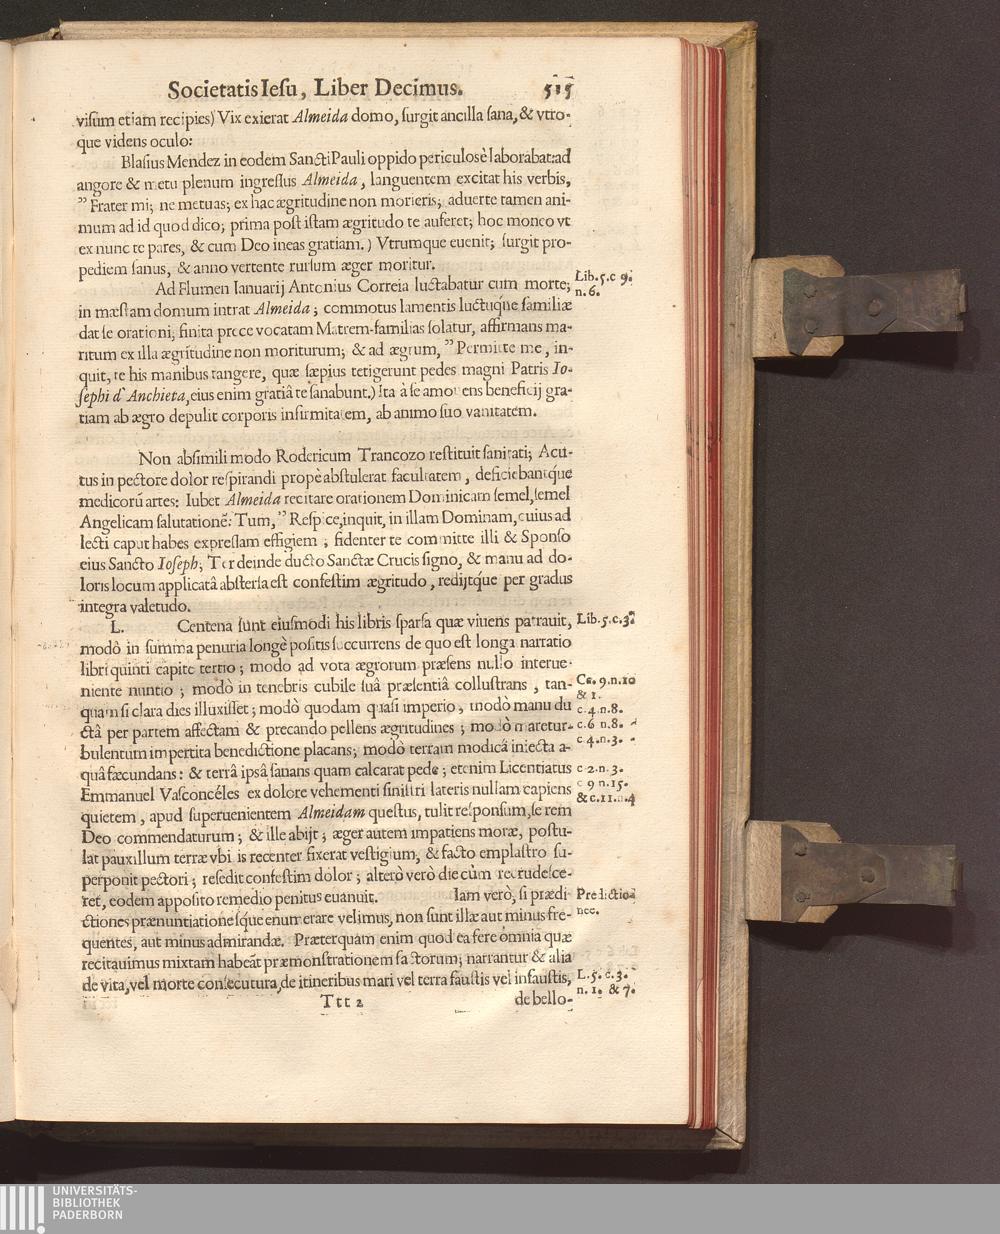 Societatis Iesu, Liber Decimus. 515
visum etiam recipies) Vix exierat Almeida domo, surgit ancilla sana, & vtro-
que videns oculo:
Blasius Mendez in eodem Sancti Pauli oppido periculosè laborabat: ad
angore & metu plenum ingressus Almeida, languentem excitat his verbis,
” Frater mi; ne metuas; ex hac ægritudine non morieris; aduerte tamen ani-
mum ad id quod dico; prima post istam ægritudo te auferet; hoc moneo vt
ex nunc te pares, & cum Deo ineas gratiam.) Vtrumque euenit; surgit pro-
pediem sanus, & anno vertente rursum æger moritur.
Ad Flumen Ianuarij Antonius Correia luctabatur cum morte; Lib. 5. c 9.
n. 6.
in mæstam domum intrat Almeida; commotus lamentis luctuq́ue familiæ
dat se orationi; finita prece vocatam Matrem-familias solatur, affirmans ma-
ritum ex illa ægritudine non moriturum; & ad ægrum, ” Permitte me, in-
quit, te his manibus tangere, quæ sæpius tetigerunt pedes magni Patris Io-
sephi d' Anchieta, eius enim gratiâ te sanabunt.) Ita à se amouens beneficij gra-
tiam ab ægro depulit corporis infirmitatem, ab animo suo vanitatem.
Non absimili modo Rodericum Trancozo restituit sanitati; Acu-
tus in pectore dolor respirandi propè abstulerat facultatem, deficiebantq́ue
medicorũ artes: Iubet Almeida recitare orationem Dominicam semel, semel
Angelicam salutationẽ: Tum, ” Respice, inquit, in illam Dominam, cuius ad
lecti caput habes expressam effigiem; fidenter te committe illi & Sponso
eius Sancto Ioseph; Ter deinde ducto Sanctæ Crucis signo, & manu ad do-
loris locum applicatâ abstersa est confestim ægritudo, redijtq́ue per gradus
integra valetudo.
L. Centena sunt eiusmodi his libris sparsa quæ viuens patrauit, Lib. 5. c. 3.
modò in summa penuria longè positis succurrens de quo est longa narratio
libri quinti capite tertio; modo ad vota ægrorum præsens nullo interue-
niente nuntio; modò in tenebris cubile suâ præsentiâ collustrans, tan- Ca. 9. n. 10
& 1.
quam si clara dies illuxisset; modò quodam quasi imperio, modò manu du c. 4. n. 8.
ctâ per partem affectam & precando pellens ægritudines; modò mare tur- c. 6 n. 8.
bulentum impertita benedictione placans; modò terram modicâ iniecta a- c 4. n. 3.
quâ fæcundans: & terrâ ipsâ sanans quam calcarat pede; etenim Licentiatus c 2. n. 3.
Emmanuel Vasconcéles ex dolore vehementi sinistri lateris nullam capiens c 9 n. 15.
& c. 11. n. 4
quietem, apud superuenientem Almeidam questus, tulit responsum, se rem
Deo commendaturum; & ille abijt; æger autem impatiens moræ, postu-
lat pauxillum terræ vbi is recenter fixerat vestigium, & facto emplastro su-
perponit pectori; resedit confestim dolor; alterò verò die cùm recrudesce-
ret, eodem apposito remedio penitus euanuit. Iam verò, si prædi- Predictio-
nes.
ctiones prænuntiationesque enumerare velimus, non sunt illæ aut minus fre-
quentes, aut minus admirandæ. Præterquam enim quod ea fere omnia quæ
recitauimus mixtam habeãt præmonstrationem factorum; narrantur & alia
de vita, vel morte consecutura, de itineribus mari vel terra faustis vel infaustis, L. 5. c. 3.
n. 1. & 7.
Ttt 2 de bello-
UNIVERSITÄTS-
BIBLIOTHEK
PADERBORN